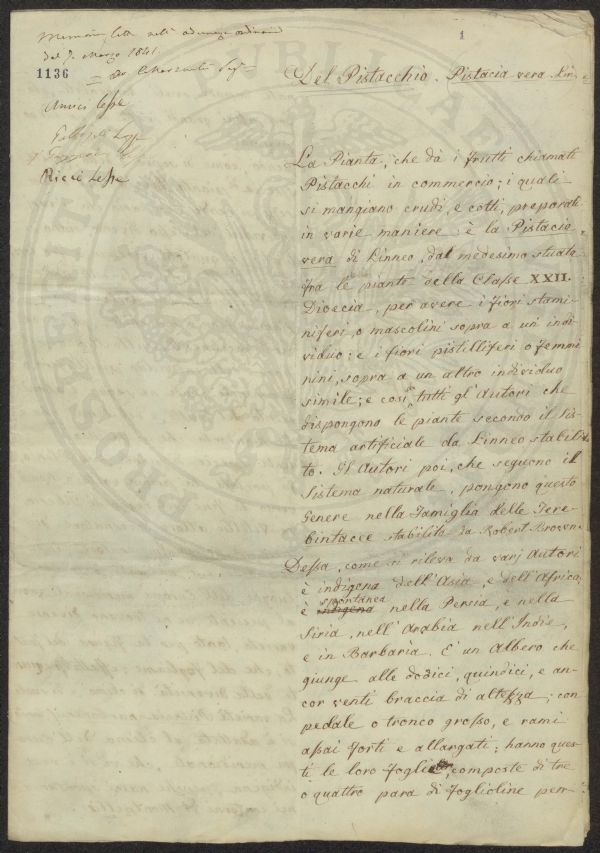 Memoria letta nell' adunanza ordinaria
del 7. Marzo 1841.
1136
Annci Lesse
Ricci Lesse
1
Del Pistacchio. Pistacia vera Lin.
La Pianta, che dà i frutti chiamati
Pistacchi in commercio; i quali
si mangiano crudi, e cotti, preparati
in varie maniere: è la Pistacia
vera di Linneo, dal medesimo situata
fra le piante della Classe XXII.
Dioecia, per avere i fiori stami-
niferi, o mascolini sopra a un indi-
viduo: e i fiori pistilliferi o femmi-
nini, sopra a un altro individuo
simile; e così tutti gl' Autori che
dispongono le piante secondo il Sis-
tema artificiale da Linneo stabili-
to. Gl Autori poi, che seguono il
Sistema naturale, pongono questo
Genere nella Famiglia delle Tere-
bintacee stabilita da Robert Brown.
Dessa, come si rileva da varj Autori
è indigena dell' Asia, e dell' Africa,
è indigena spontanea nella Persia, e nella
Siria, nell' Arabia nell' Indie,
e in Barbaria. E' un Albero che
giunge alle dodici, quindici, e an-
cor venti braccia di altezza; con
pedale o tronco grosso, e rami
assai forti e allargati; hanno ques-
ti le loro foglie composte di tre
o quattro para di foglioline per-